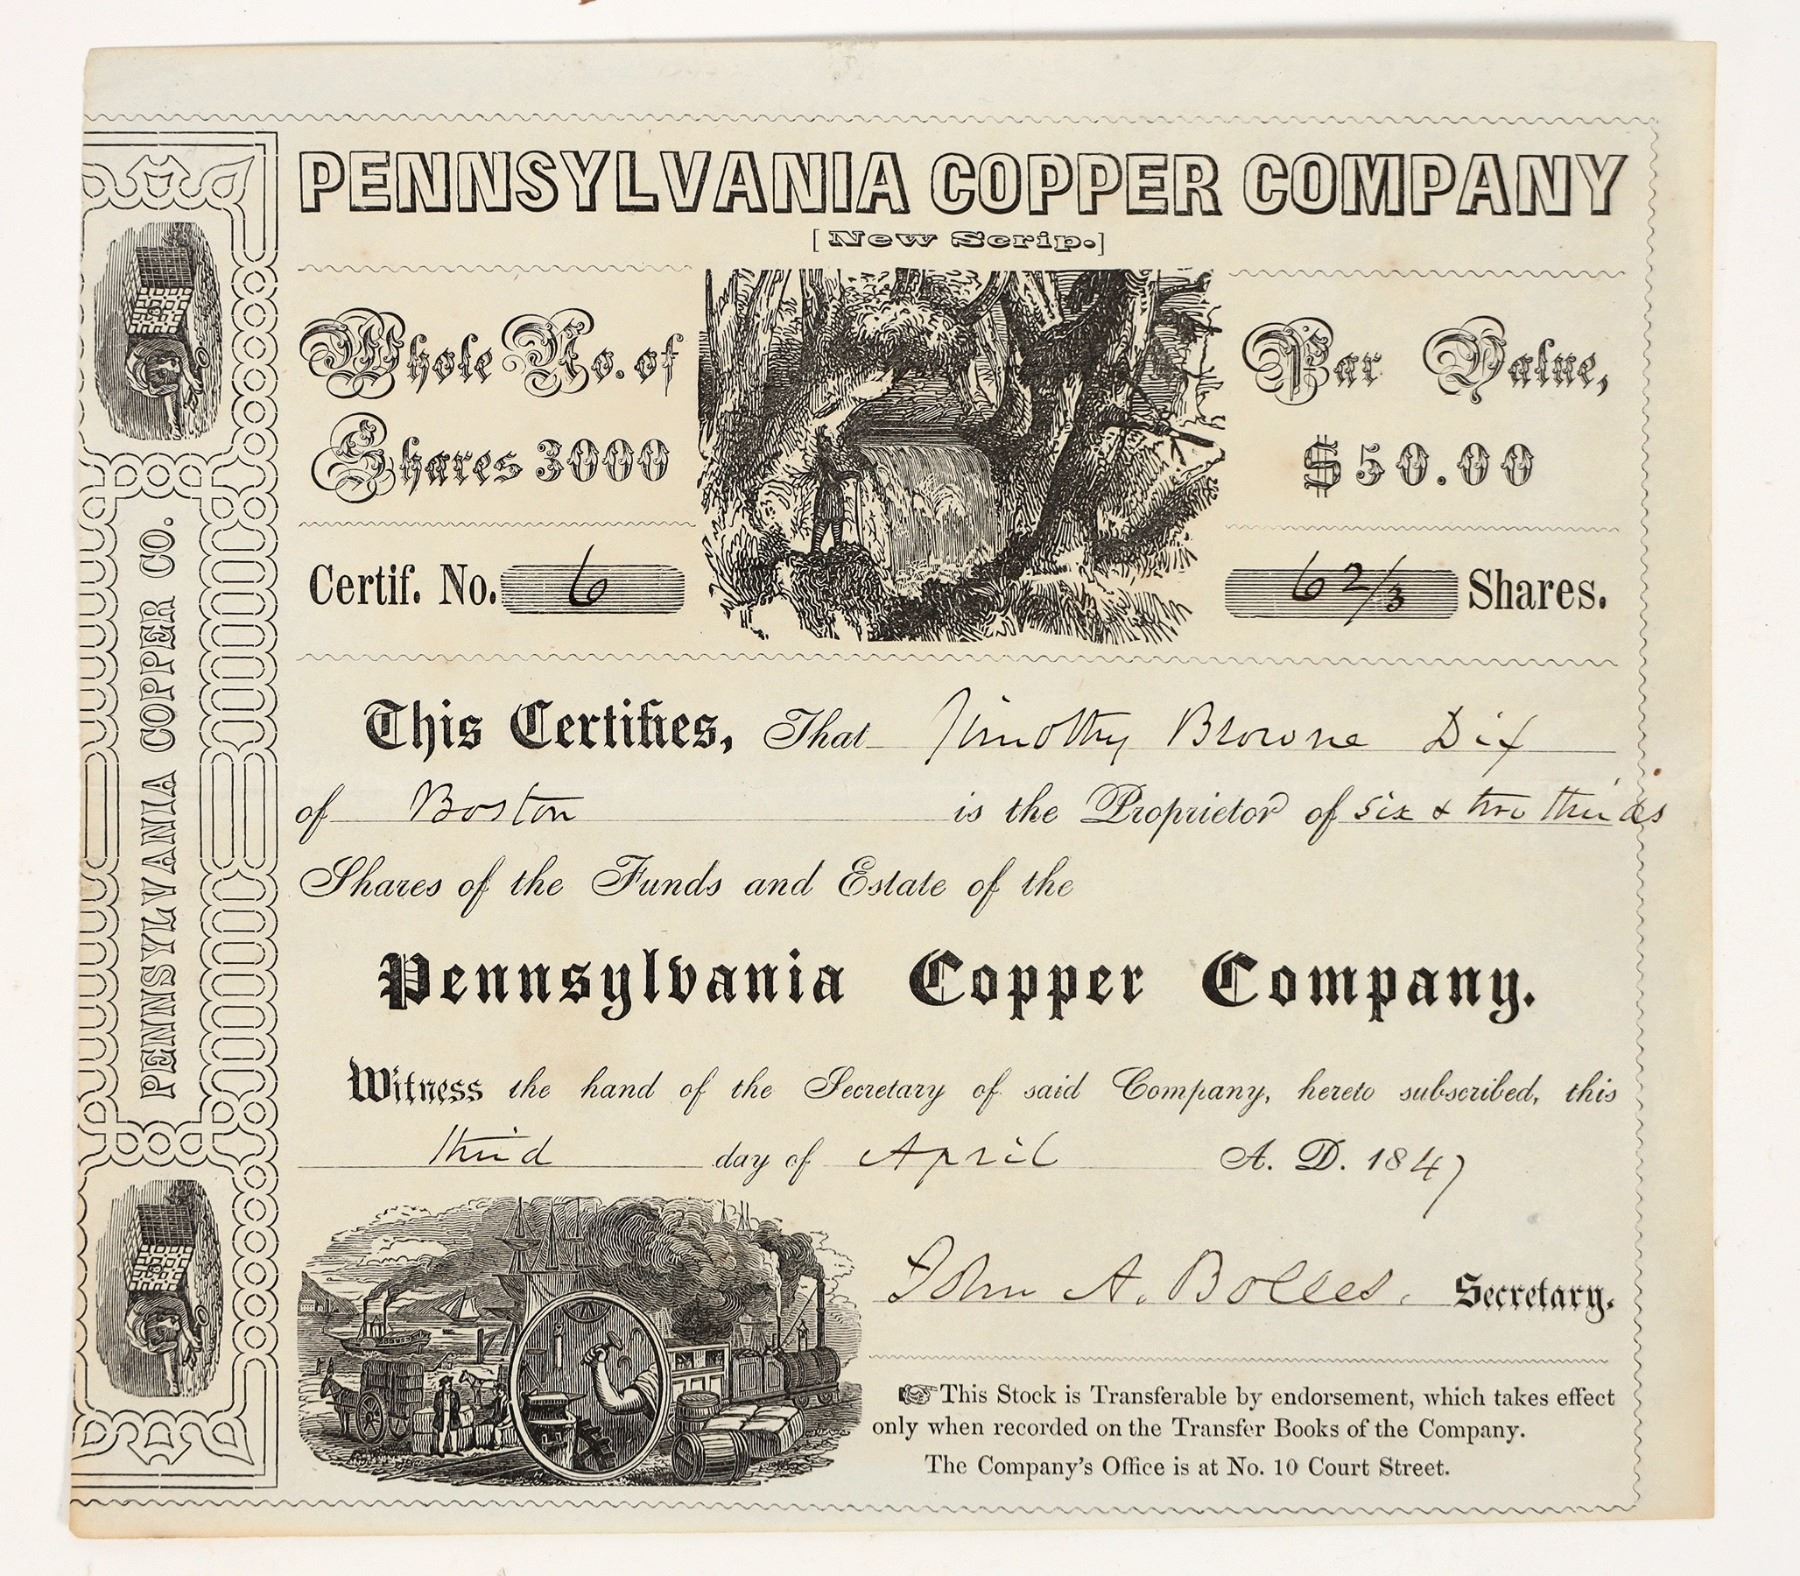 PENNSYLVANIA COPPER COMPANY
[New Scrip.]
Whole No. of
Shares 3000
Par Value,
$50.00
Certif. No. 6
6 2/3 Shares.
PENNSYLVANIA COPPER CO.
This Certifies, That Timothy Browne Dix
of Boston is the Proprietor of six & two thirds
Shares of the Funds and Estate of the
Pennsylvania Copper Company.
Witness the hand of the Secretary of said Company, hereto subscribed, this
third day of April A. D. 1847
John A. Bolles. Secretary.
☞ This Stock is Transferable by endorsement, which takes effect
only when recorded on the Transfer Books of the Company.
The Company's Office is at No. 10 Court Street.